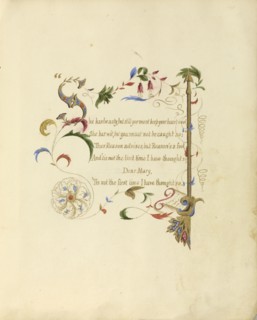 “She has beauty, but still you must keep your heart cool
She has wit, but you must not be caught so
Thus Reason advises, but Reason's a fool
And 'tis not the first time I have thought so
Dear Mary,
'Tis not the first time I have thought so